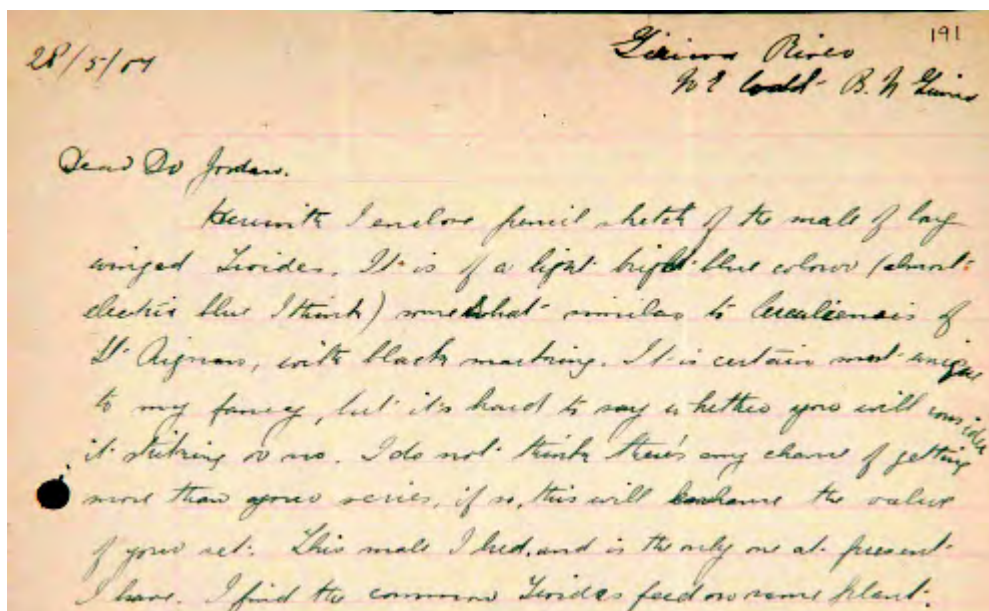 191
28/5/07
River
N E Coast B. N Guinea
Dear Dr Jordan.
Herewith I enclose pencil sketch of the male of long
winged Troides. It is of a light bright blue colour (almost
electric blue I think) somewhat similar to Caelicensis of
St Aignans, with black marking. It is certain most unique
to my fancy, but it's hard to say whether you will consider
it striking or no. I do not think there's any chance of getting
more than your series, if so, this will enhance the value
of your set. This male I bred, and is the only one at present
I have. I find the common Troides feed on same plant.